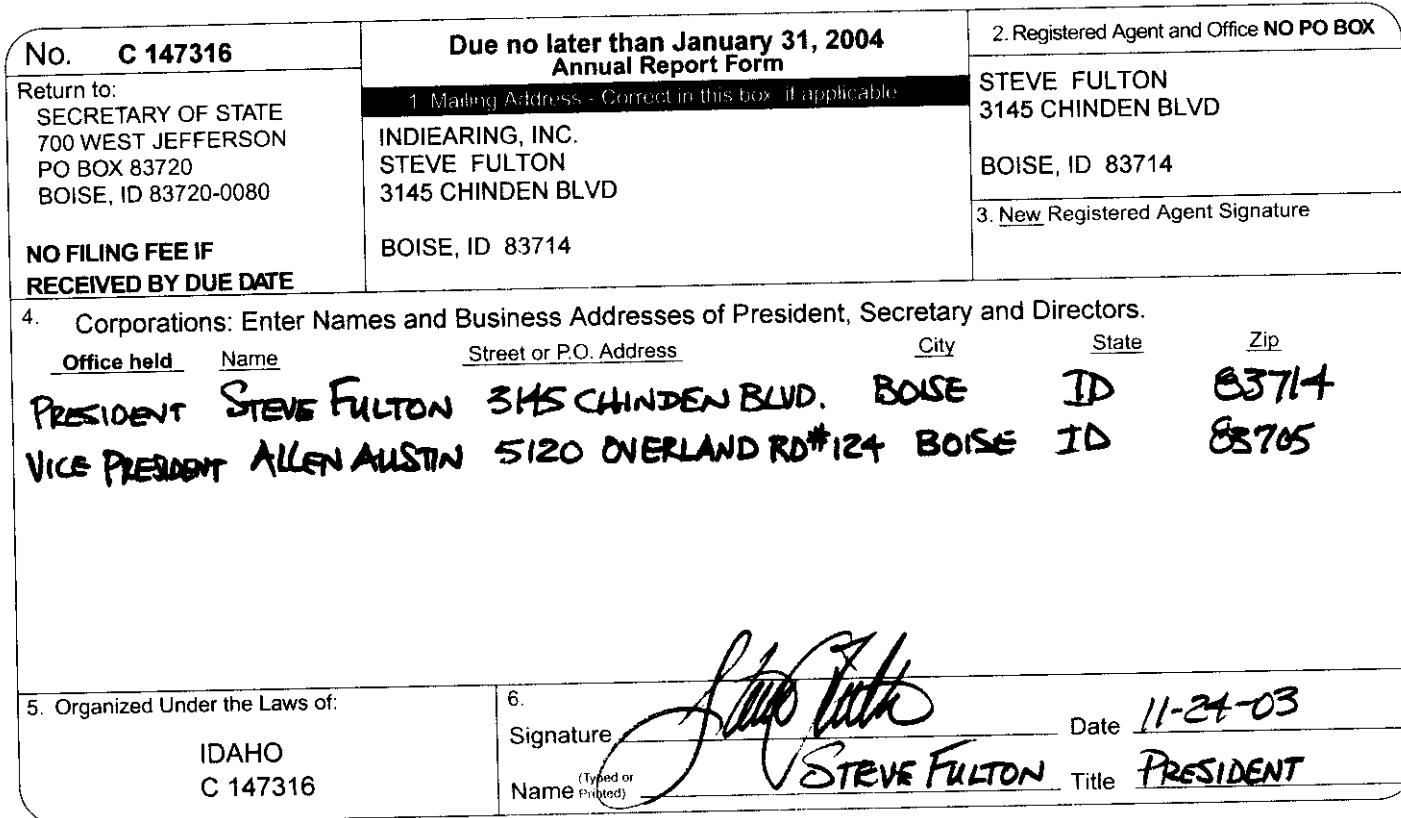 No. C 147316
Return to:
SECRETARY OF STATE
700 WEST JEFFERSON
PO BOX 83720
BOISE, ID 83720-0080
NO FILING FEE IF
RECEIVED BY DUE DATE
Due no later than January 31, 2004
Annual Report Form
1. Mailing Address - Correct in this box, if applicable
INDIEARING, INC.
STEVE FULTON
3145 CHINDEN BLVD
BOISE, ID 83714
2. Registered Agent and Office NO PO BOX
STEVE FULTON
3145 CHINDEN BLVD
BOISE, ID 83714
3. New Registered Agent Signature
4. Corporations: Enter Names and Business Addresses of President, Secretary and Directors.
Office held Name Street or P.O. Address City State Zip
PRESIDENT STEVE FULTON 3145 CHINDEN BLVD. BOISE ID 83714
VICE PRESIDENT ALLEN AUSTIN 5120 OVERLAND RD #124 BOISE ID 83705
5. Organized Under the Laws of:
IDAHO
C 147316
6.
Signature Date 11-24-03
Name (Typed or Printed) STEVE FULTON Title PRESIDENT